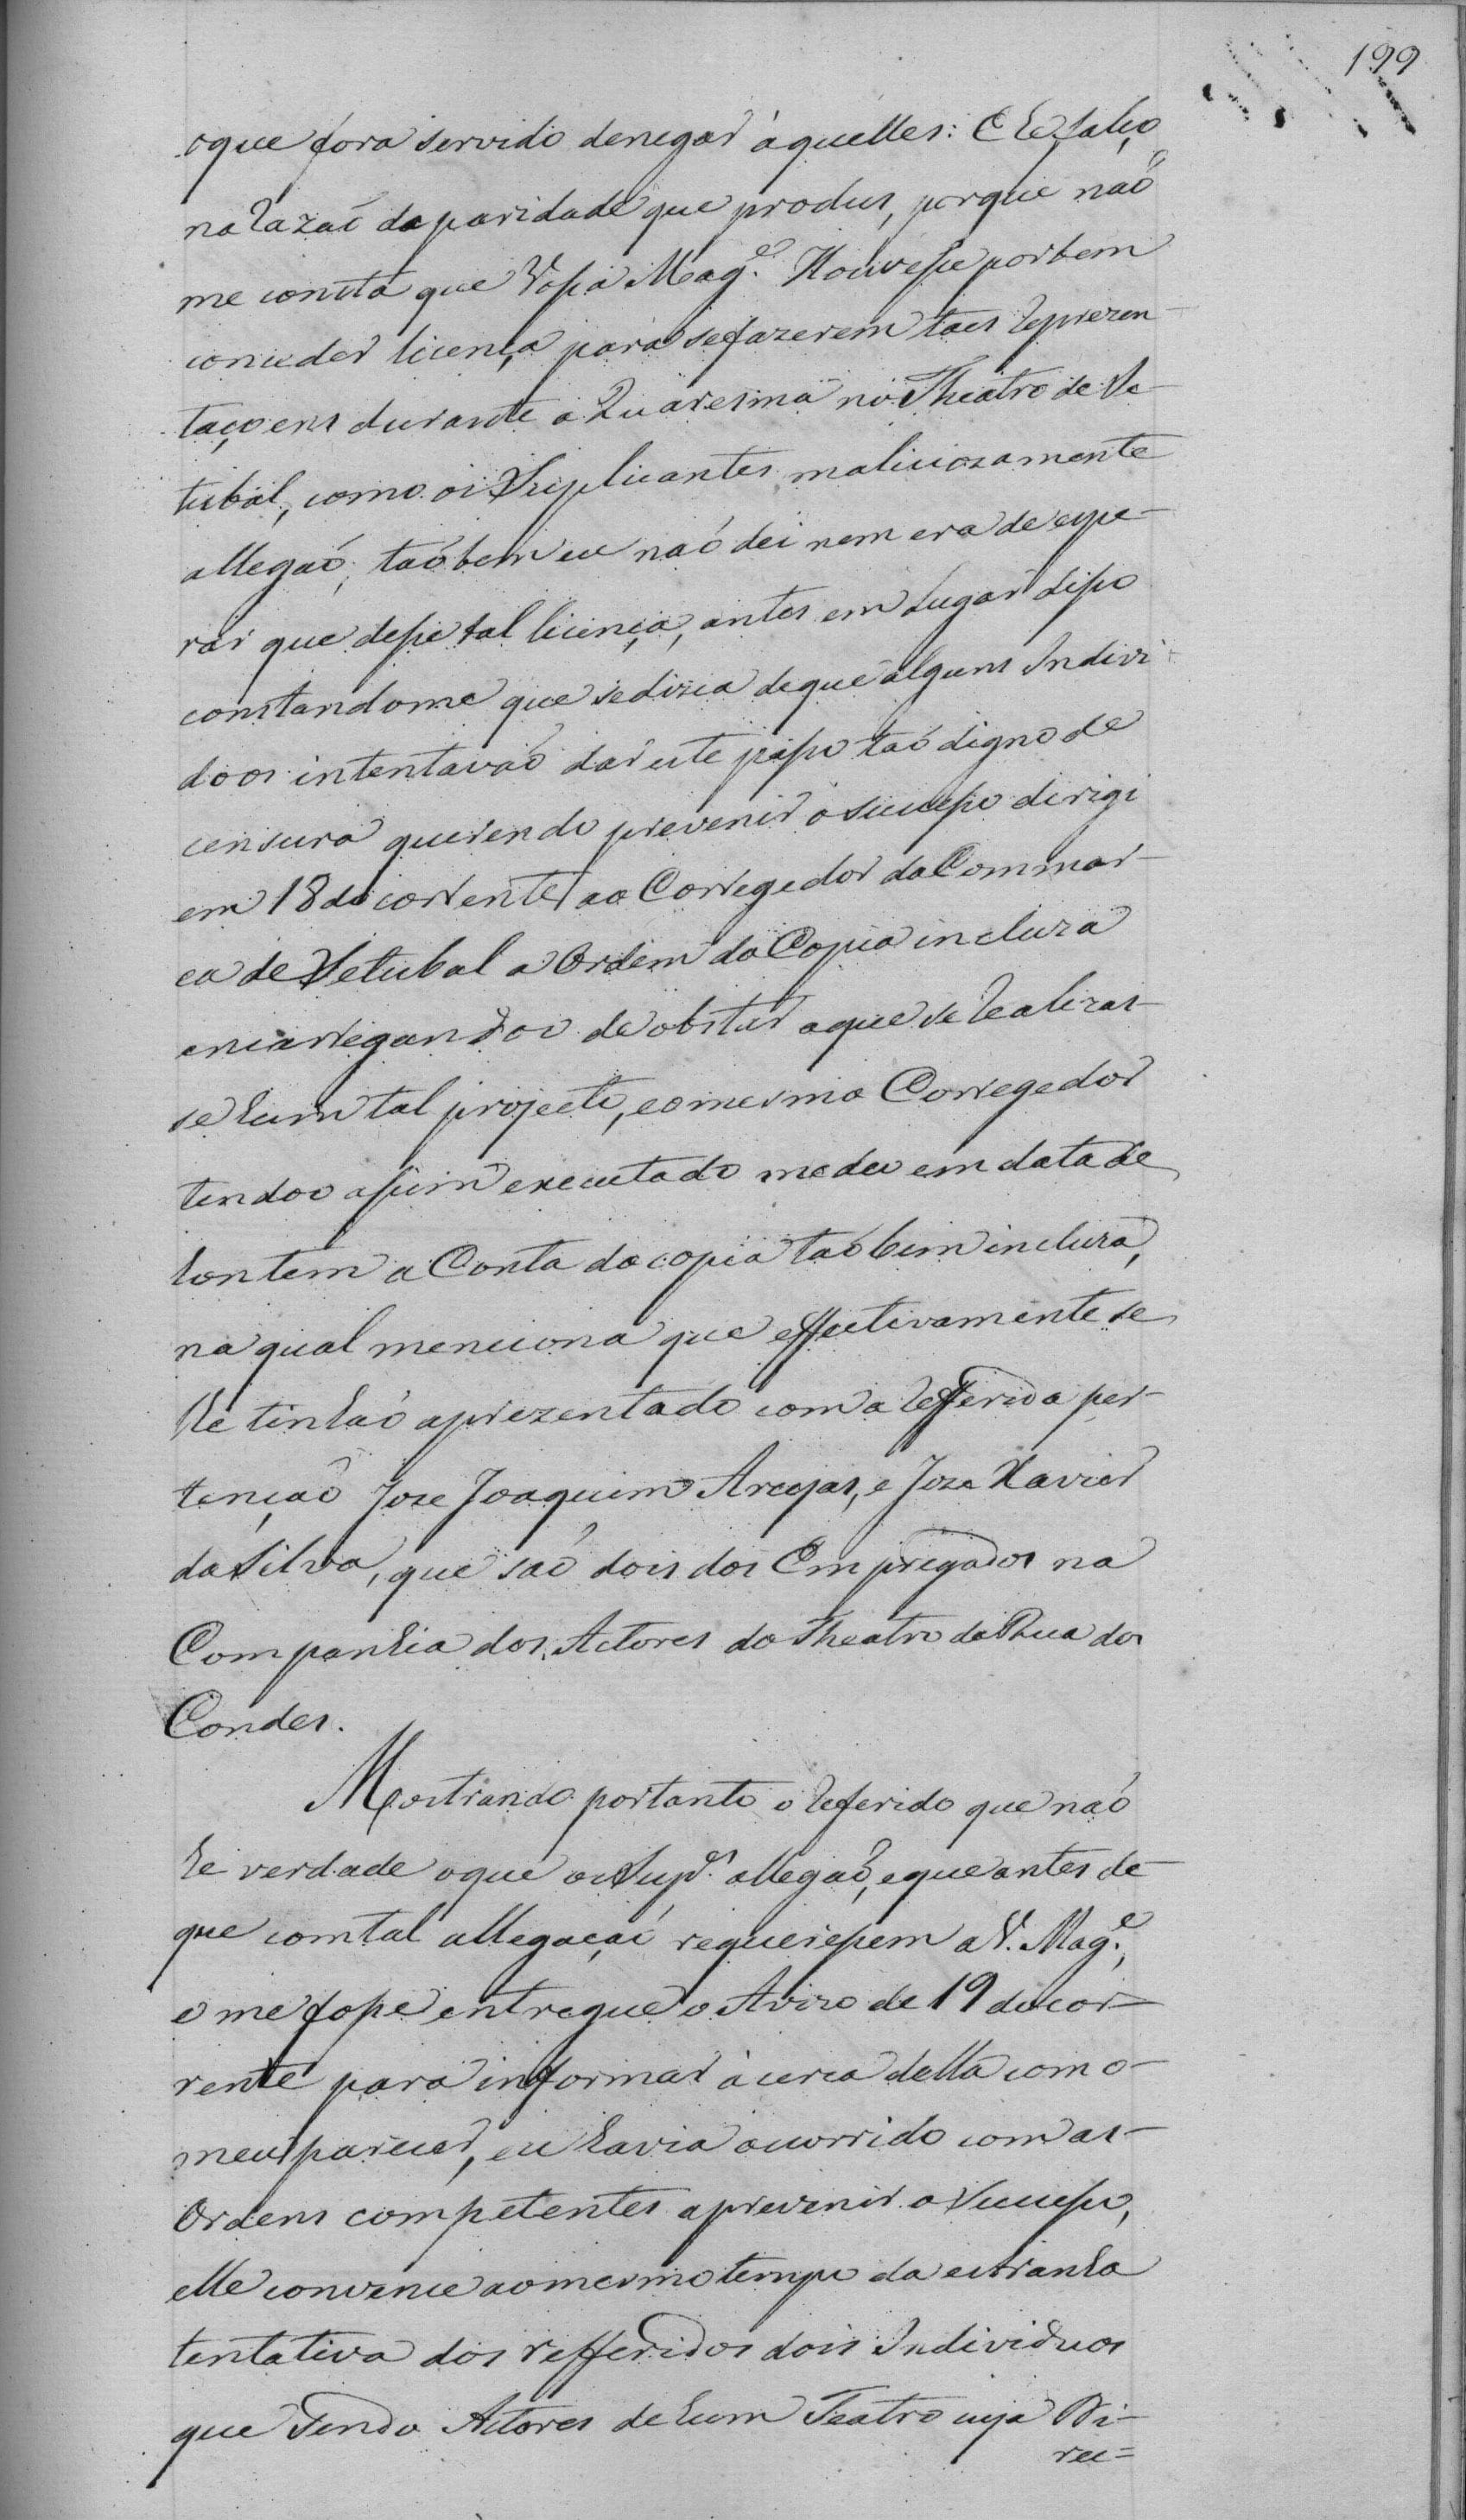 199
oque fora servido denegar àquelles: E he falço
na razaõ da paridade que produs, porque naõ
me consta que Vossa Mag.e Houvesse por bem
conceder licença para se fazerem taes reprezen-
taçoens durante a Quaresma no Theatro de Se-
tubal, como os Suplicantes maliciozamente
allegaõ; taõbem eu naõ dei nem era de espe-
rar que desse tal licença, antes em Lugar disso
constandome que se dizia de que alguns Indivi-
doos intentavaõ dar este passo taõ digno de
censura querendo prevenir o sucesso dirigi
em 18 do corrente ao Corregedor da Commar-
ca de Setubal a Ordem da Copia incluza
encarregandoo de obstar a que se realizas-
se hum tal projecto, eo mesmo Corregedor
tendoo assim executado me deu em data de
hontem a Conta da copia taõbem incluza,
na qual menciona que effectivamente se
lhe tinhaõ aprezentado com a refferida per-
tençaõ Joze Joaquim Arcejas, e Joze Xavier
da Silva, que saõ dois dos Empregados na
Companhia dos Actores do Theatro da Rua dos
Condes.
Mostrando portanto o referido que naõ
he verdade oque os Sup.es allegaõ, e que antes de
que com tal allegaçaõ requeressem a V. Mag.e,
e me fosse entregue o Avizo de 19 do cor-
rente para informar àcerca della com o
meu parecer, eu havia ocorrido com as
Ordens competentes a prevenir o Sucesso,
elle convence ao mesmo tempo da estranha
tentativa dos refferidos dois Individuos
que sendo Actores de hum Teatro cuja Di-
rec=